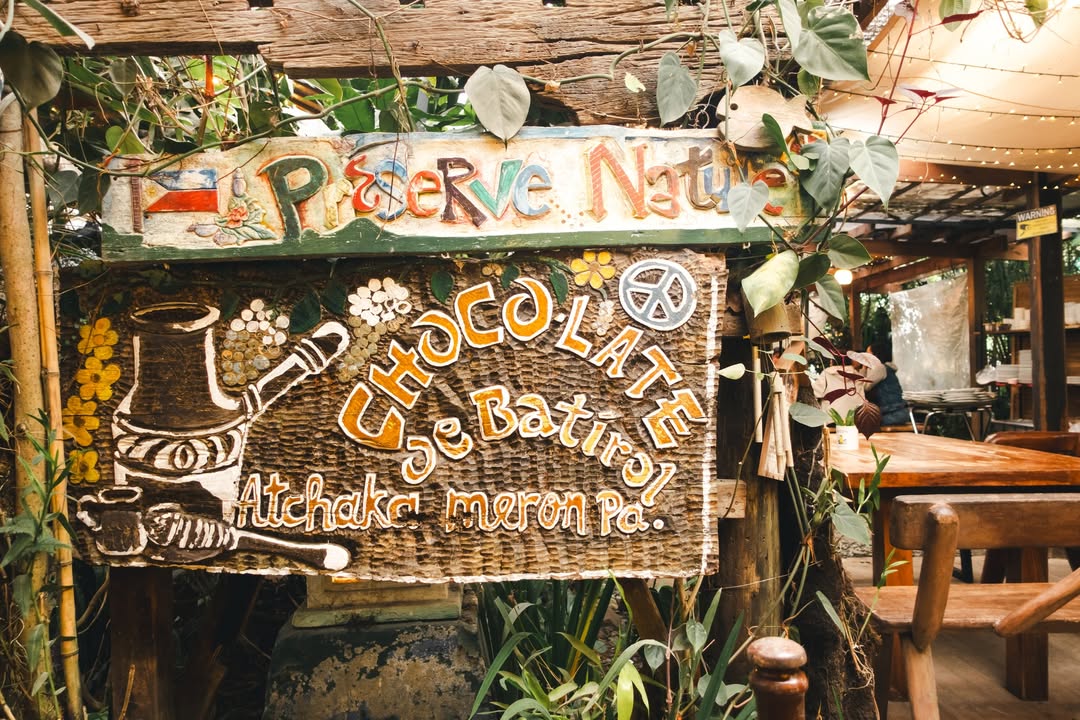 Preserve Nature
CHOCO.LATE
de Batirol
Atchaka meron pa.
WARNING